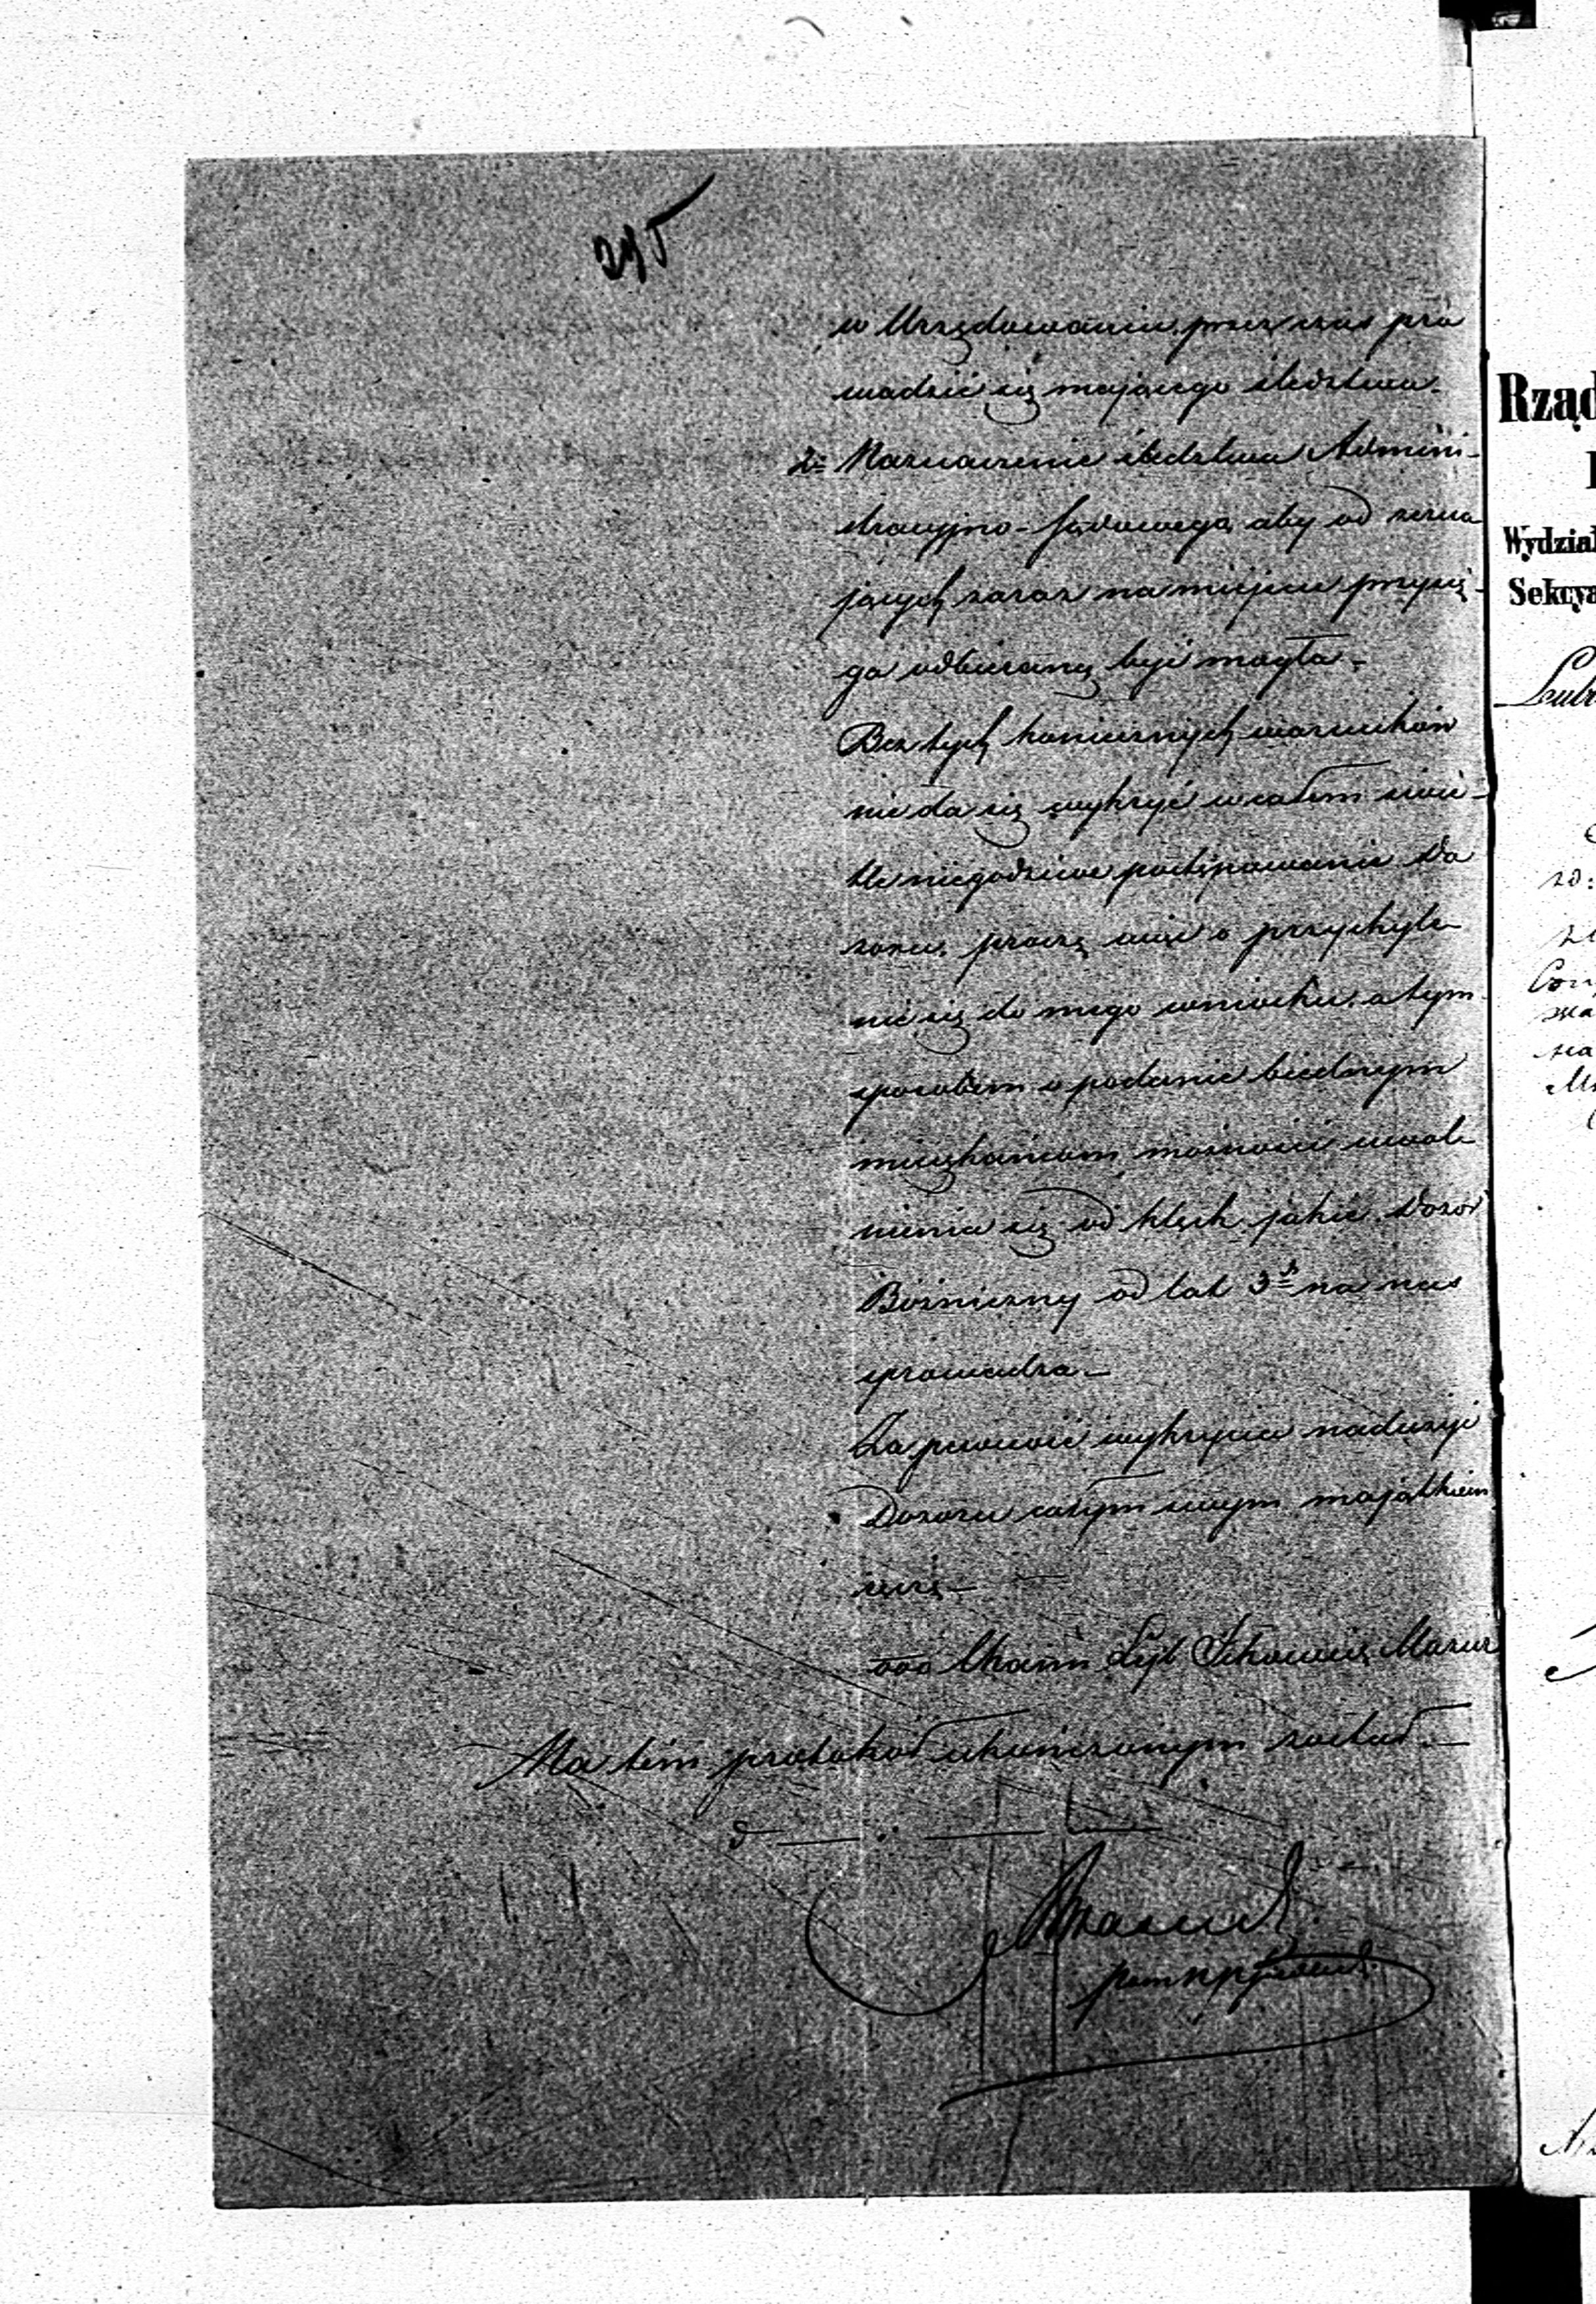 295
w Urzędowaniu, przez czas pro
wadzić się mającego śledztwa.
2o Naznaczenie śledztwa Admini-
stracyjno-Sądowego, aby od zezna
jących zaraz na miejscu przysię-
ga odbieraną być mogła.-
Bez tych koniecznych warunków
nie da się wykryć w całem świe-
tle niegodziwe postępowanie Do
zoru, proszę więc o przychyle
nie się do mego wniosku, a tym
sposobem o podanie biednym
mieszkańcom możności uwol
nienia się od klęsk jakie Dozór
Bóżniczny od lat 3ch na nas
sprowadza.-
Za pewność wykrycia nadużyć
Dozoru całym swym majątkiem
ręczę.-
ooo Chaim Lejb Mazur
Na tém protokół ukończonym został.-
Rząd
Wydział
Sekcya